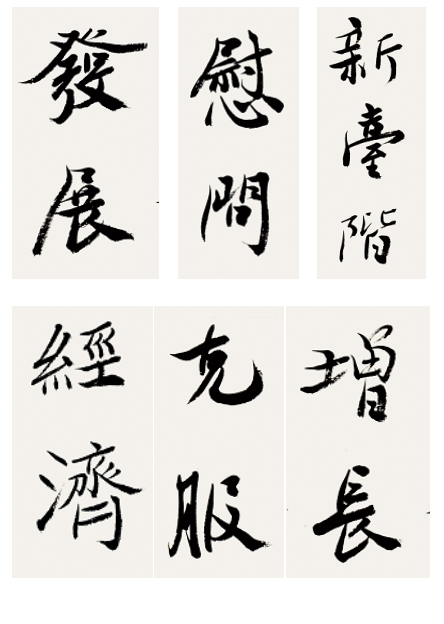 發展
慰問
新臺階
經濟
克服
增長